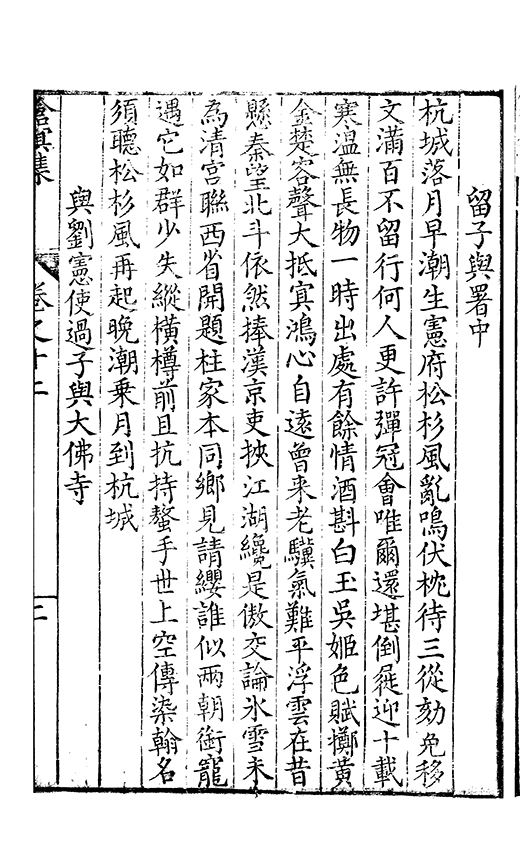 留子與署中
杭城落月早潮生憲府松杉風亂鳴伏枕待三從劾免移
文滿百不留行何人更許彈冠會唯爾還堪倒屣迎十載
寒溫無長物一時出處有餘情酒斟白玉吳姬色賦擲黃
金楚客聲大抵㝠鴻心自遠曾來老驥氣難平浮雲在昔
懸秦望北斗依然捧漢京吏挾江湖纔是傲交論氷雪未
為清宮聯西省開題柱家本同鄉見請纓誰似兩朝銜寵
遇它如群少失縱橫樽前且抗持螯手世上空傳染翰名
須聽松杉風再起晚潮乘月到杭城
與劉憲使過子與大佛寺
滄溟集
卷之十二
二